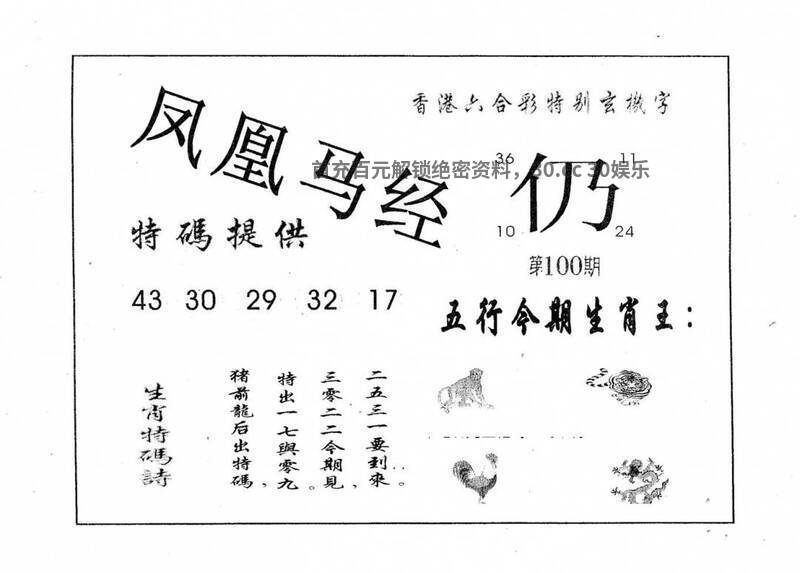 香港六合彩特别玄機字
凤凰马经
36 11
仍
10 24
首充百元解锁绝密资料，30.cc 30娱乐
特碼提供
第100期
43 30 29 32 17
五行今期生肖王：
生肖特碼詩
二五三一要到來。
三零二二今期見，
特出一七與零九。
猪前龍后出特碼，